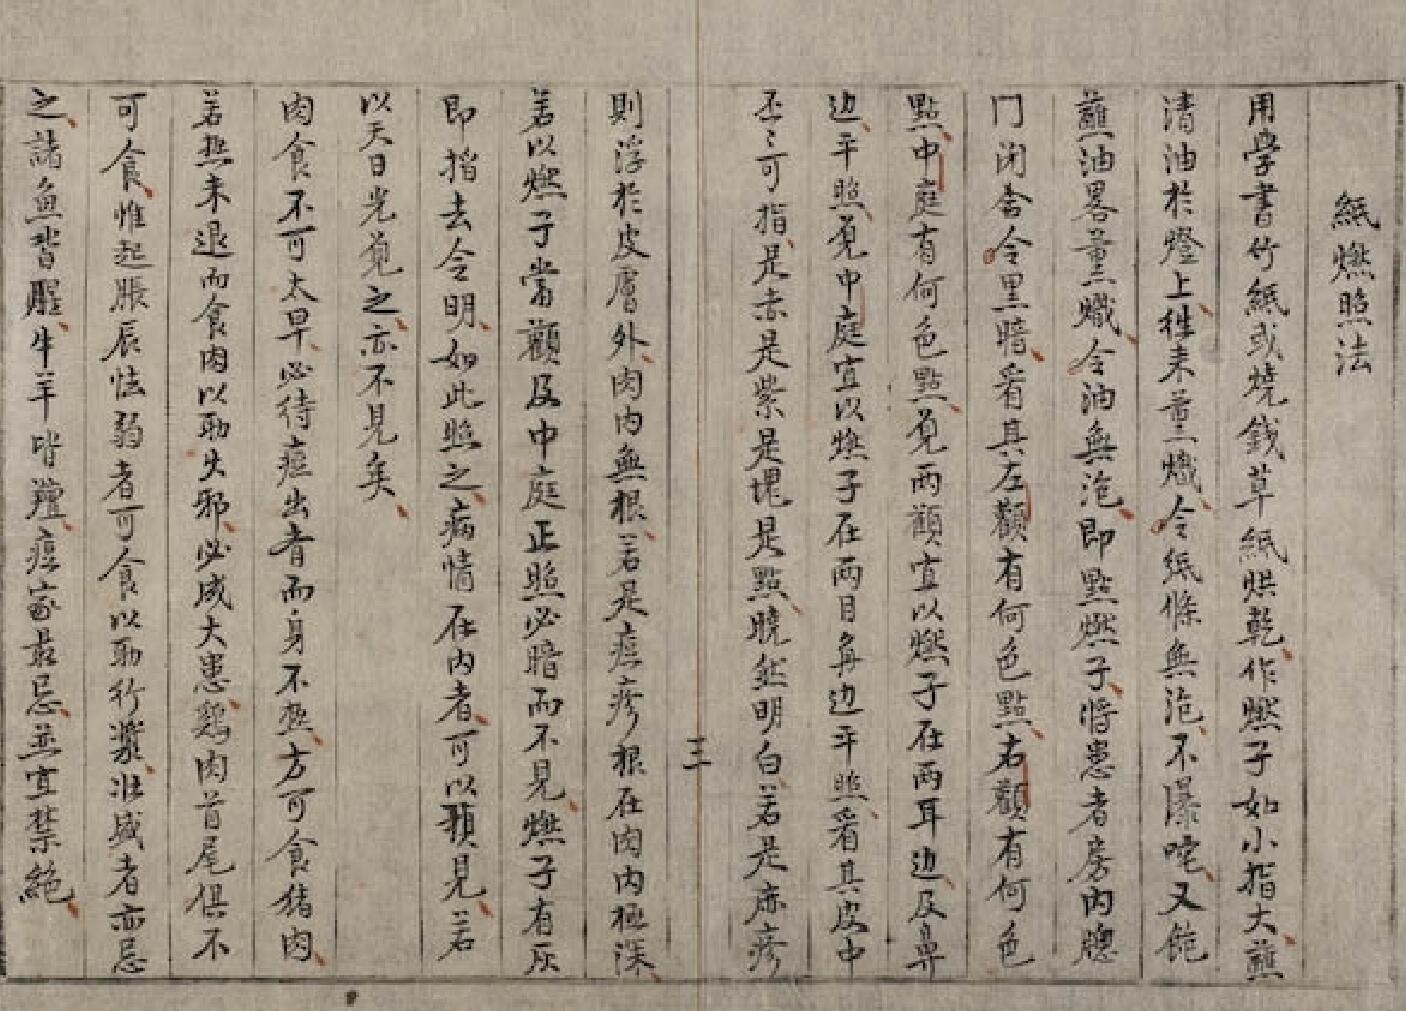 紙燃照法
用学書竹紙或燒錢草紙烘乾作燃子如小指大蘸
清油於燈上徃来薰熾令紙條無泡不瀑咤又飽
蘸油畧薰熾令油無泡即點燃子将患者房内牎
門闭舍令黒暗看具左顴有何色點右顴有何色
點中庭有何色點覓两顴宜以燃子在两耳边及鼻
边平照覓中庭宜以燃子在两目角边平照看其皮中
歷〻可指是赤是紫是塊是點曉然明白若是麻疹
三
則浮於皮膚外肉内無根若是痘疹根在肉内極深
若以燃子當顴及中庭正照必暗而不見燃子有灰
即揩去令明如此照之病情在内者可以預見若
以天日光覓之亦不見矣
肉食不可太早必待痘出齊而身不热方可食猪肉
若热未退而食肉以助火邪必成大患鷄肉首尾俱不
可食惟起脹辰怯弱者可食以助行漿壮盛者亦忌
之諸魚皆腥牛羊皆羶痘家最忌並宜禁絶